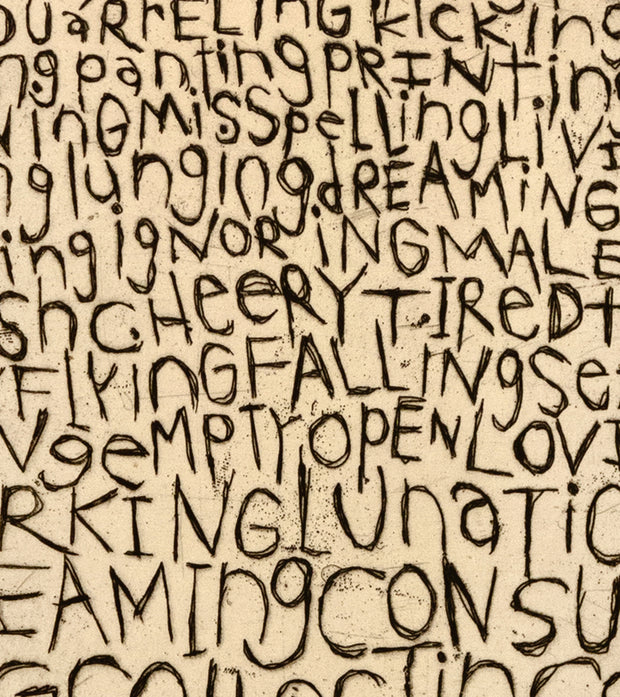 QUaRrELING KICKing
ng panting PRINTin
VinG MiSSpeLLing LiVI
ng lunging dREAMiNG
ing igNORiNG MALE
Sh CHeeRY TIReD t
FlyinG FALLINg Se
Vge eMPTY OPEN LOVI
RKING lUnaTiC
EAMIng CONSU